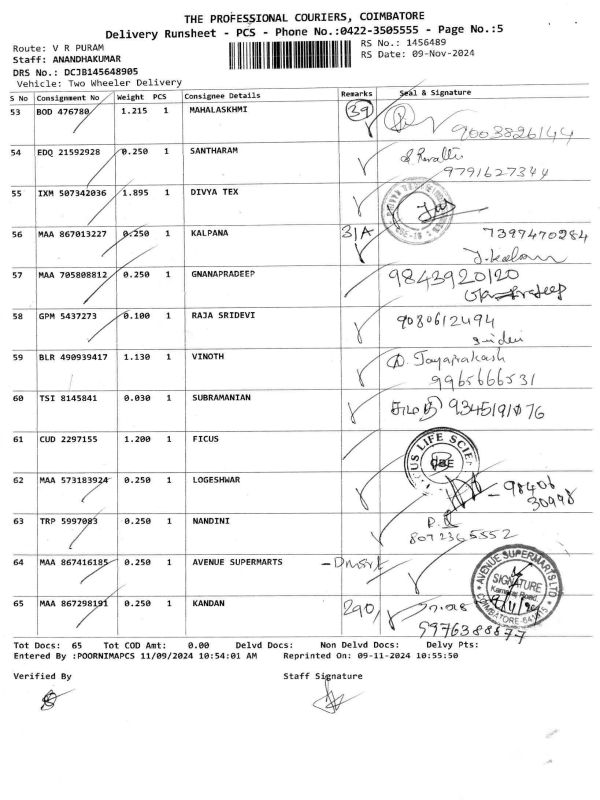 THE PROFESSIONAL COURIERS, COIMBATORE
Delivery Runsheet - PCS - Phone No.:0422-3505555 - Page No.:5
Route: V R PURAM
RS No.: 1456489
Staff: ANANDHAKUMAR
RS Date: 09-Nov-2024
DRS No.: DCJB145648905
Vehicle: Two Wheeler Delivery
S No Consignment No Weight PCS Consignee Details Remarks Seal & Signature
53 BOD 476780 1.215 1 MAHALASKHMI 39
9003826144
54 EDQ 21592928 0.250 1 SANTHARAM
9791627344
55 IXM 507342036 1.895 1 DIVYA TEX
56 MAA 867013227 0.250 1 KALPANA 31A 7397470284
57 MAA 705808812 0.250 1 GNANAPRADEEP 9843920120
58 GPM 5437273 0.100 1 RAJA SRIDEVI 9080612494
59 BLR 490939417 1.130 1 VINOTH D. Jayaprakash
9965666531
60 TSI 8145841 0.030 1 SUBRAMANIAN
61 CUD 2297155 1.200 1 FICUS
LIFE SCIE
CBE
62 MAA 573183924 0.250 1 LOGESHWAR 98406
30998
63 TRP 5997083 0.250 1 NANDINI
8072365552
64 MAA 867416185 0.250 1 AVENUE SUPERMARTS - Dmart
AVENUE SUPERMARTS LTD
SIGNATURE
COIMBATORE
65 MAA 867298191 0.250 1 KANDAN 290/
9976388877
Tot Docs: 65 Tot COD Amt: 0.00 Delvd Docs: Non Delvd Docs: Delvy Pts:
Entered By :POORNIMAPCS 11/09/2024 10:54:01 AM Reprinted On: 09-11-2024 10:55:50
Verified By Staff Signature